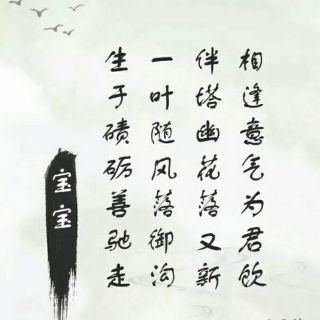 相逢意气为君饮
伴塔幽花落又新
一叶随风落御沟
生于碛砺善驰走
宝宝